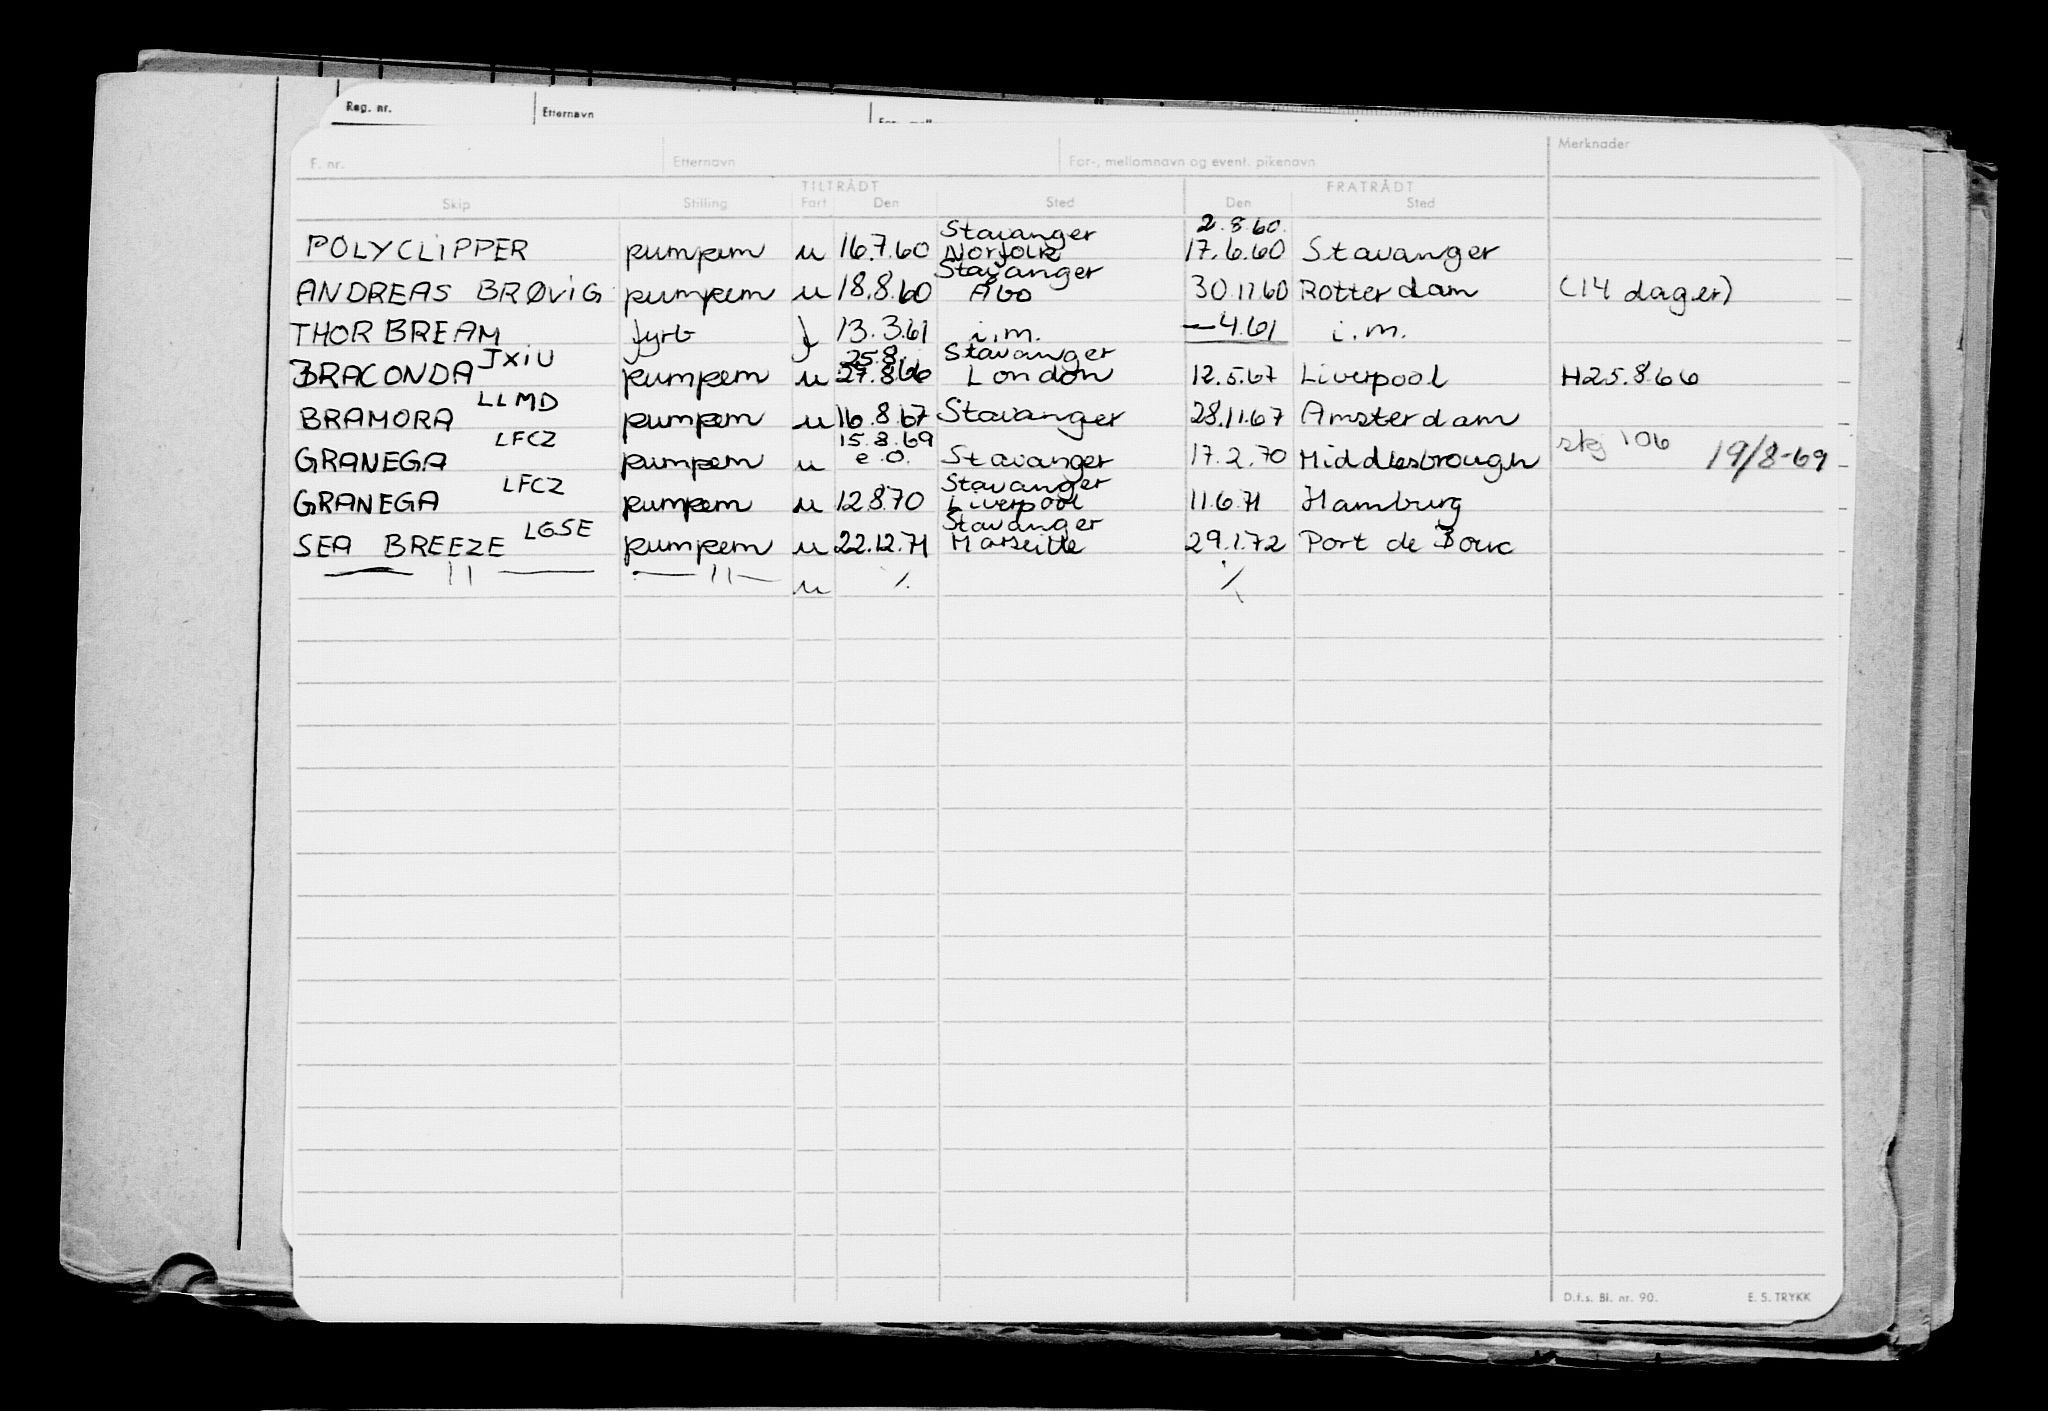 Reg. nr. Etternavn
F. nr. Etternavn For-, mellomnavn og event. pikenavn Merknader
TILTRÅDT FRATRÅDT
Skip Stilling Fart Den Sted Den Sted
Stavanger 2.8.60.
POLYCLIPPER pumpem u 16.7.60 Norfolk 17.6.60 Stavanger
Stavanger
ANDREAS BRØVIG pumpem u 18.8.60 Åbo 30.11.60 Rotterdam (14 dager)
THOR BREAM fyrb f 13.3.61 i.m. —4.61 i.m.
JXIU 25.8. Stavanger
BRACONDA pumpem u 27.8.66 London 12.5.67 Liverpool H25.8.66
LLMD
BRAMORA pumpem u 16.8.67 Stavanger 28.11.67 Amsterdam
LFCZ 15.8.69
GRANEGA pumpem u e.o. Stavanger 17.2.70 Middlesbrough skj 106 19/8-69
LFCZ Stavanger
GRANEGA pumpem u 12.8.70 Liverpool 11.6.71 Hamburg
LGSE Stavanger
SEA BREEZE pumpem u 22.12.71 Marseille 29.1.72 Port de Bouc
— 11 — — 11 — u ./. ./.
D.f.s. Bl. nr. 90. E. S. TRYKK